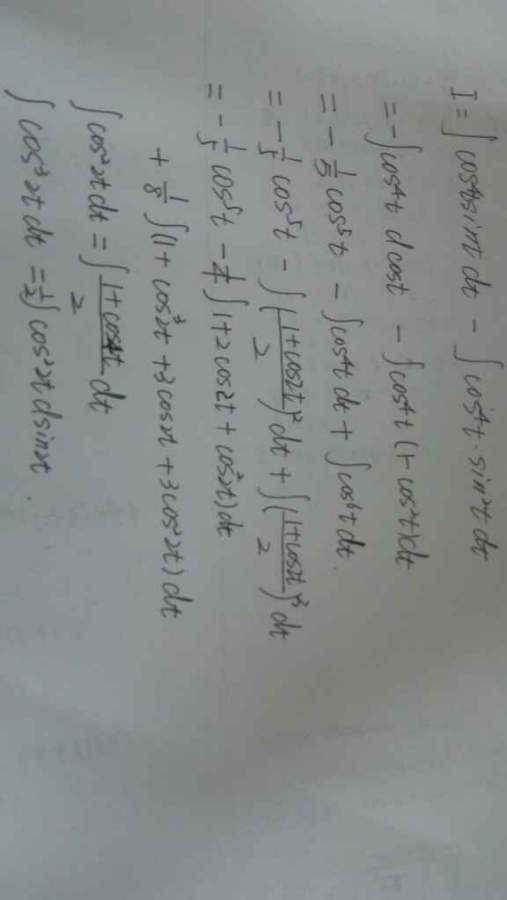 I = ∫cos⁴t sint dt − ∫cos⁴t · sin²t dt
= −∫cos⁴t dcost − ∫cos⁴t (1−cos²t)dt
= −1/5 cos⁵t − ∫cos⁴t dt + ∫cos⁶t dt.
= −1/5 cos⁵t − ∫(1+cos2t/2)² dt + ∫(1+cos2t/2)³ dt
= −1/5 cos⁵t − 1/4 ∫(1+2cos2t+cos²2t)dt
+ 1/8 ∫(1+cos³2t+3cos2t+3cos²2t)dt
∫cos²2t dt = ∫1+cos4t/2 dt
∫cos³2t dt = 1/2∫cos²2t dsin2t.